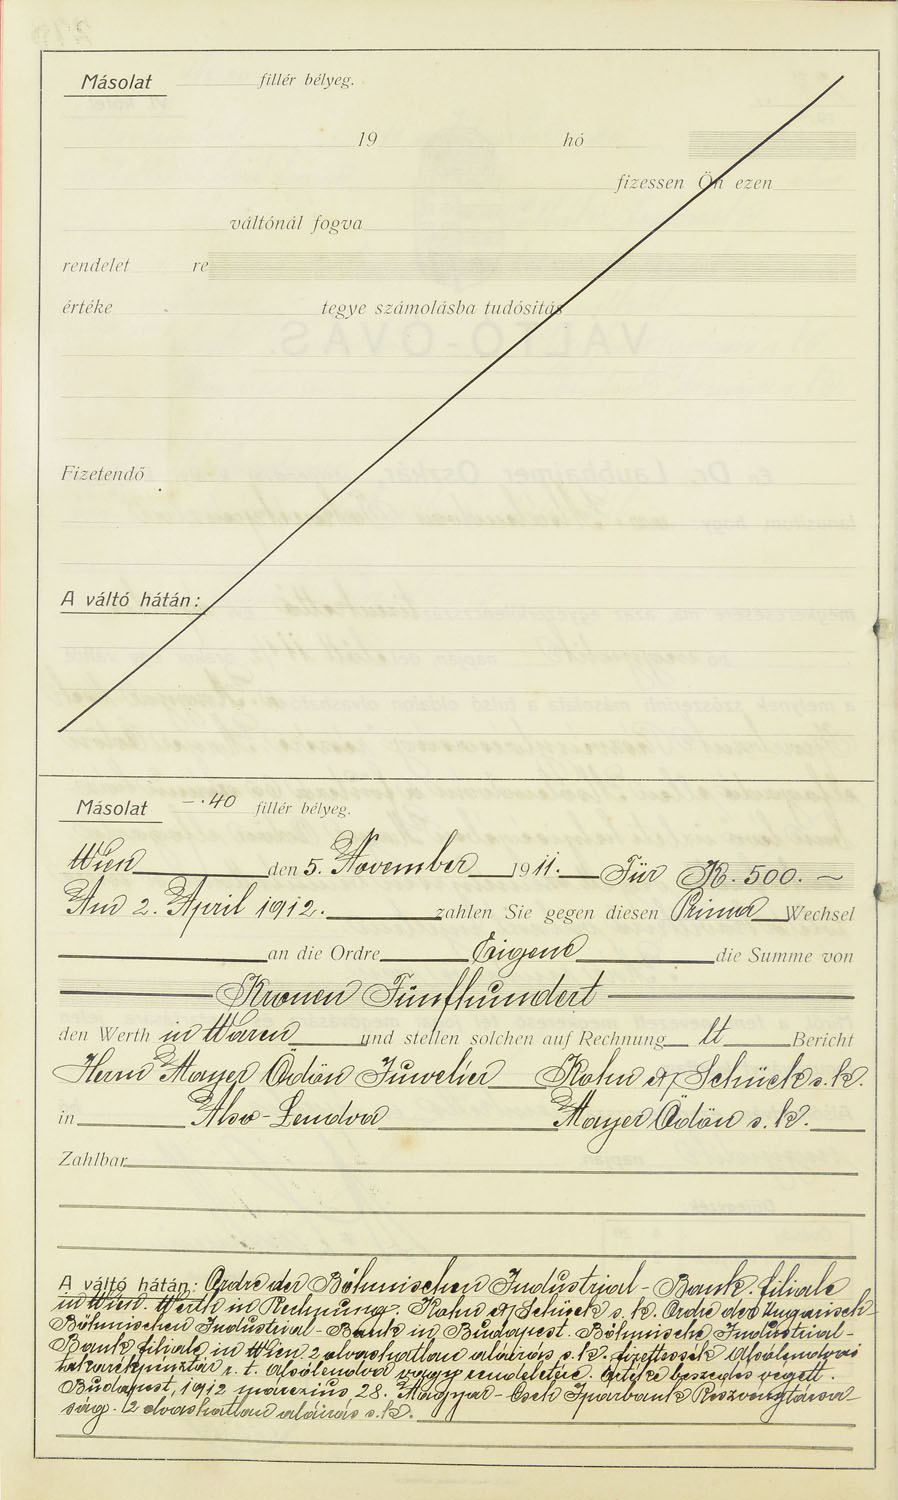 Másolat fillér bélyeg.
19 hó
fizessen Ön ezen
váltónál fogva
rendelet re
értéke tegye számolásba tudósítás
Fizetendő
A váltó hátán:
Másolat —.40 fillér bélyeg.
Wien den 5. November 1911. Für K. 500.—
Am 2. April 1912. zahlen Sie gegen diesen Prima Wechsel
an die Ordre Eigene die Summe von
Kronen Fünfhundert
den Werth in Waren und stellen solchen auf Rechnung lt Bericht
Herrn Mayer Ödön Juwelier Kohn & Schück s. k.
in Alsó-Lendva Mayer Ödön s. k.
Zahlbar
A váltó hátán: Ordre der Böhmischen Industrial-Bank filiale
in Wien. Werth in Rechnung. Kohn & Schück s. k. Ordre der Ungarisch
Böhmischen Industrial-Bank in Budapest. Böhmische Industrial-
Bank filiale in Wien 2 olvashatlan aláírás s. k. fizettessék Alsólendvai
takarékpénztár r. t. Alsólendva vagy rendeletére. Értéke beszedés végett.
Budapest, 1912 március 28. Magyar-Cseh Iparbank Részvénytársa-
ság. 2 olvashatlan aláírás s. k.